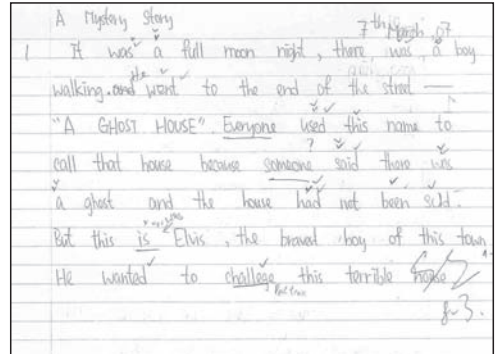 A Mystery Story
7th March, 07
1 It was a full moon night, there was, a boy
walking. and he went to the end of the street —
"A GHOST HOUSE". Everyone used this name to
call that house because someone said there was
a ghost and the house had not been sold.
But this is Elvis, the braved boy of this town
He wanted to challege this terrible house